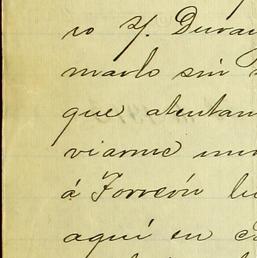 ro y. Duran
marlo sin
que atentam
viarme un
á Torreón
aquí en